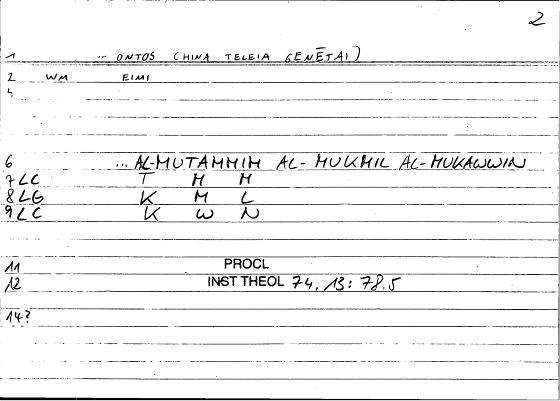 2
1 ... ONTOS (HINA TELEIA GENĒTAI)
2 WM EIMI
6 ... AL-MUTAMMIM AL-MUKMIL AL-MUKAWWIN
7 LC T M M
8 LG K M L
9 LC K W N
11 PROCL
12 INST THEOL 74, 13: 78.5
14?